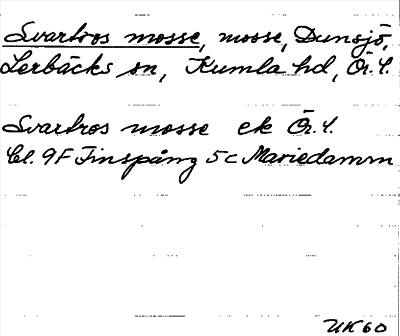 Svartros mosse, mosse, Dunsjö,
Lerbäcks sn, Kumla hd, Ör. l.
Svartros mosse ek Ör. l.
bl. 9F Finspång 5c Mariedamm
UK60